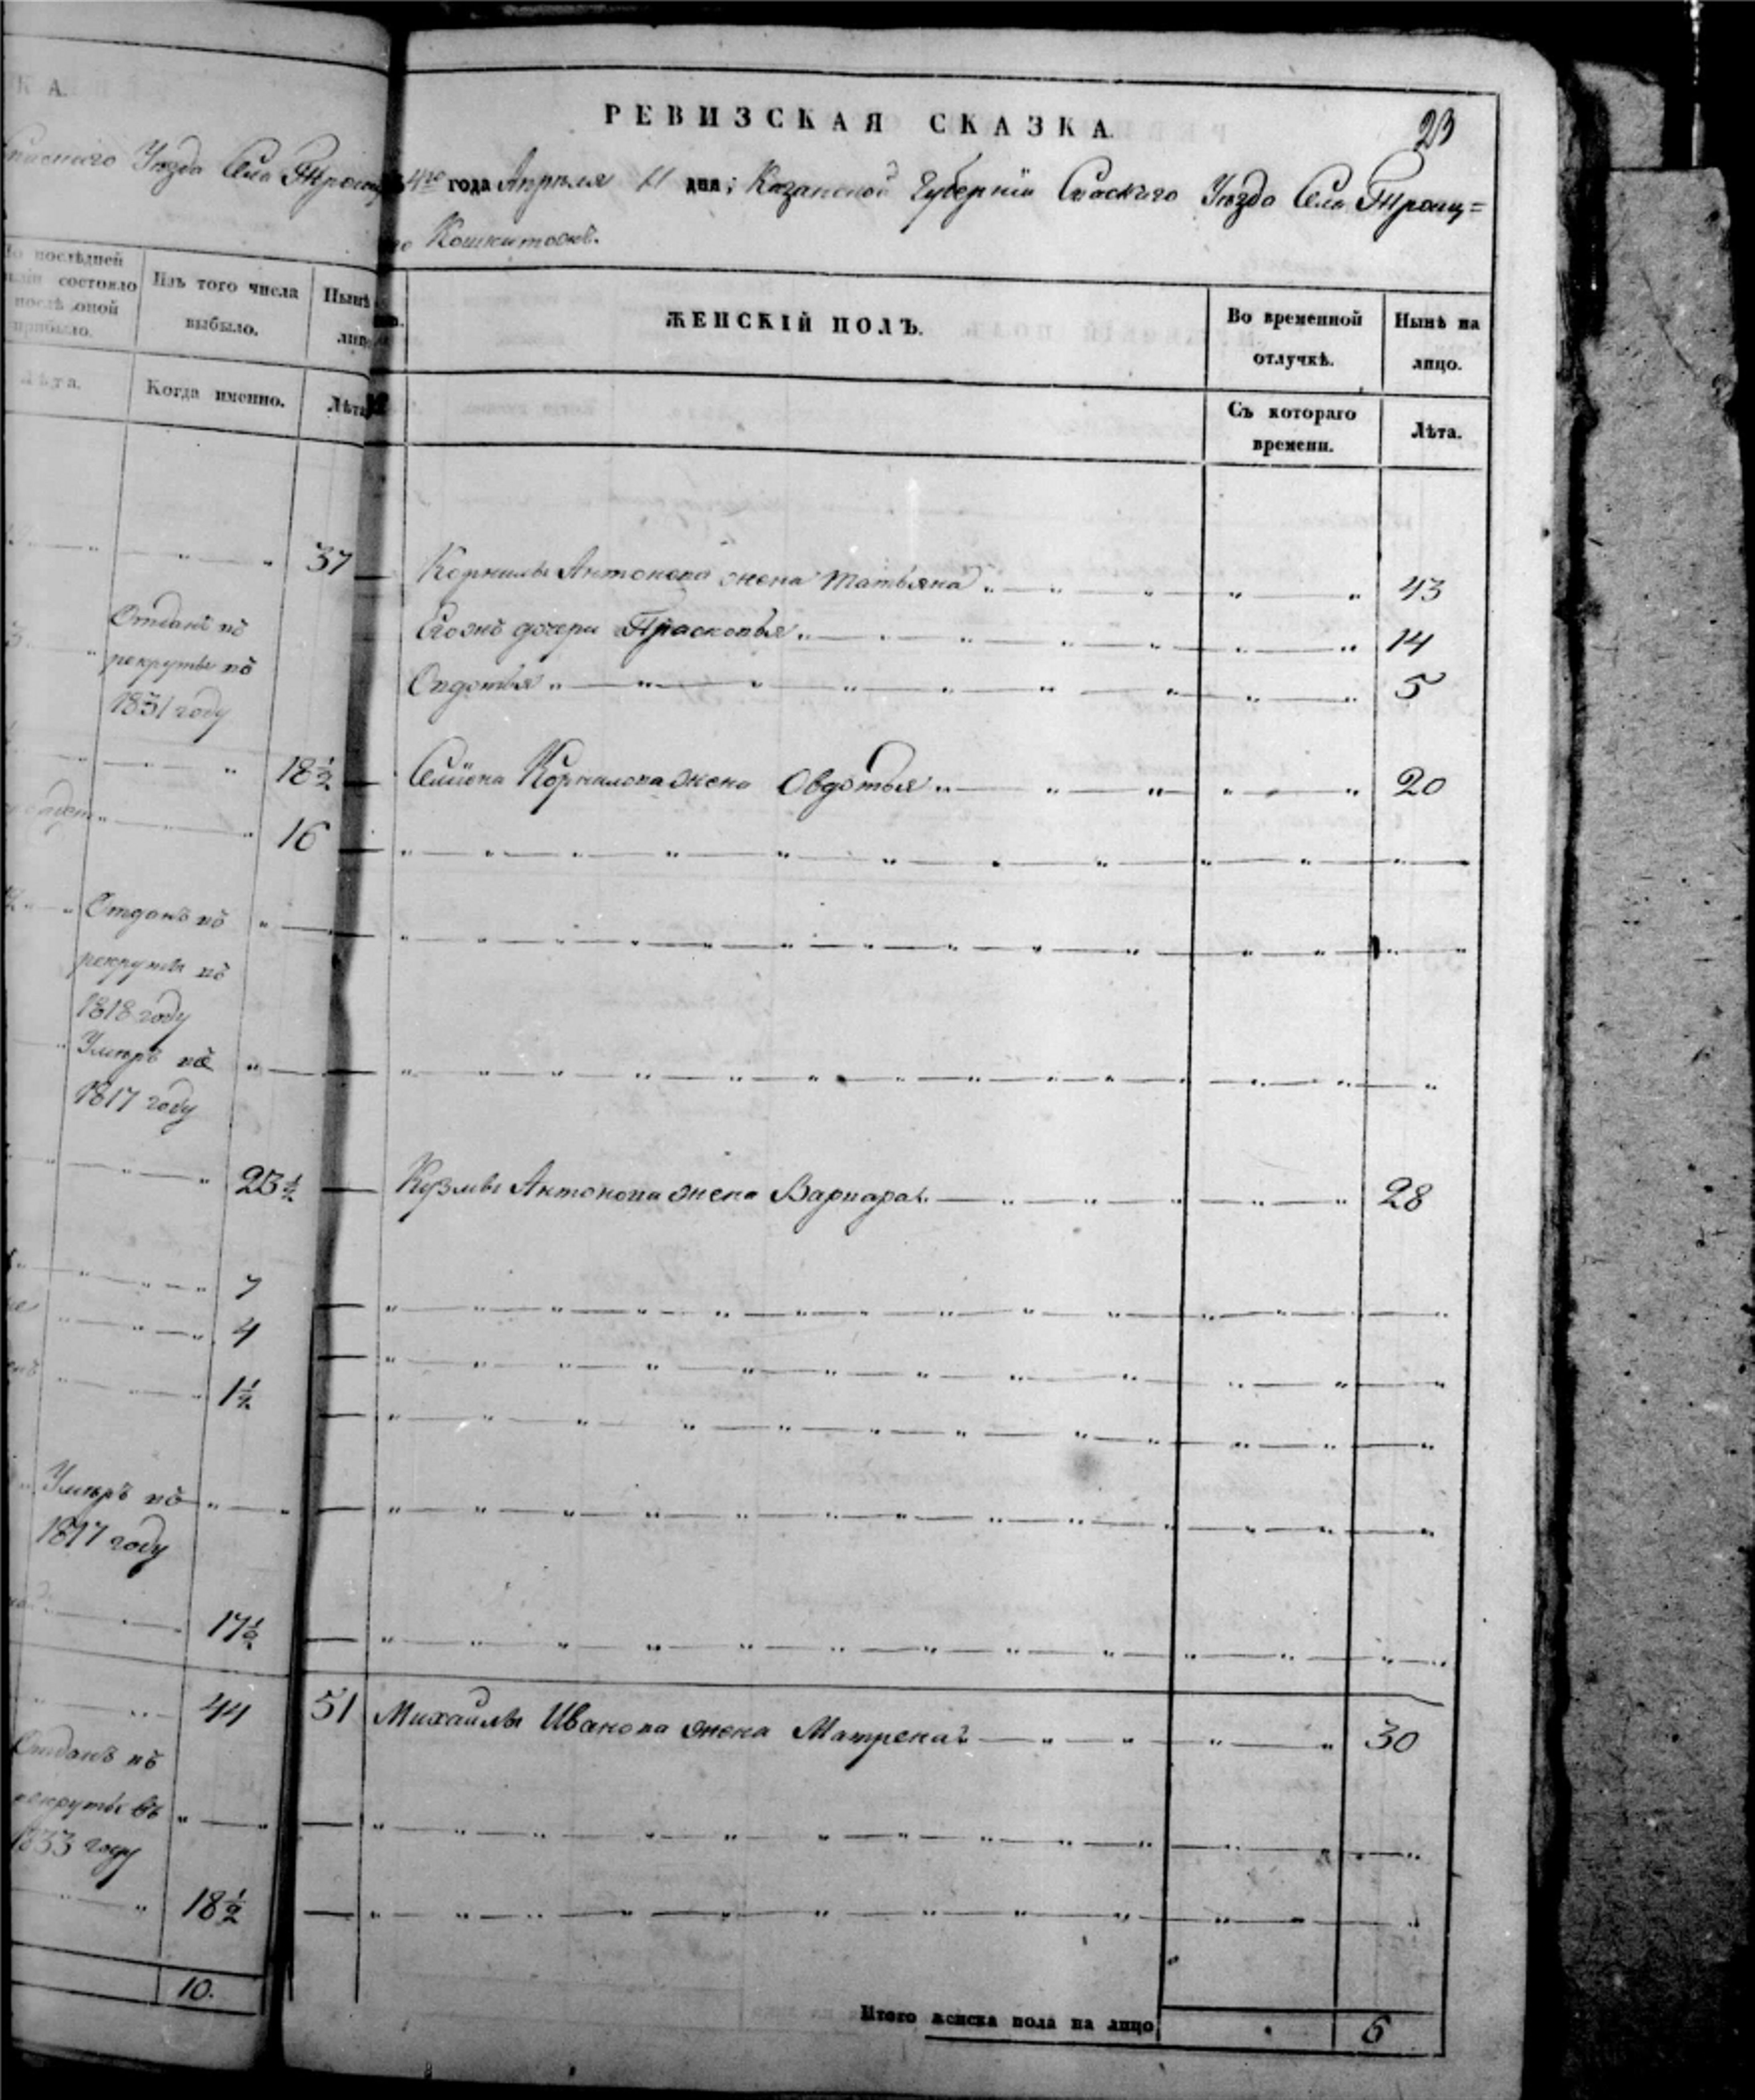 КА.
Уѣзда Села Троиц
послѣдней
состояло
послѣ оной
прибыло.
Изъ того числа
выбыло.
Нынѣ
лицо
Лѣта.
Когда именно.
Лѣта
37
Отданъ въ
рекруты въ
1831 году
18½
16
Отданъ въ
рекруты въ
1818 году
Умеръ въ
1817 году
23½
7
4
1½
Умеръ въ
1817 году
17½
44
Отданъ въ
рекруты въ
1833 году
18½
10.
РЕВИЗСКАЯ СКАЗКА.
23
4го года Апрѣля 11 дня; Казанской Губерніи Спаскаго Уѣзда Села Троиц=
Кошкитасъ.
ЖЕНСКІЙ ПОЛЪ.
Во временной
отлучкѣ.
Нынѣ на
лицо.
Съ котораго
времени.
Лѣта.
Корнилы Антонова жена Татьяна 43
Егожъ дочери Прасковья 14
Овдотья 5
Семіона Корнилова жена Овдотья 20
Кузмы Антонова жена Варвара 28
51 Михайлы Иванова жена Матрена 30
Итого женска пола на лицо 6